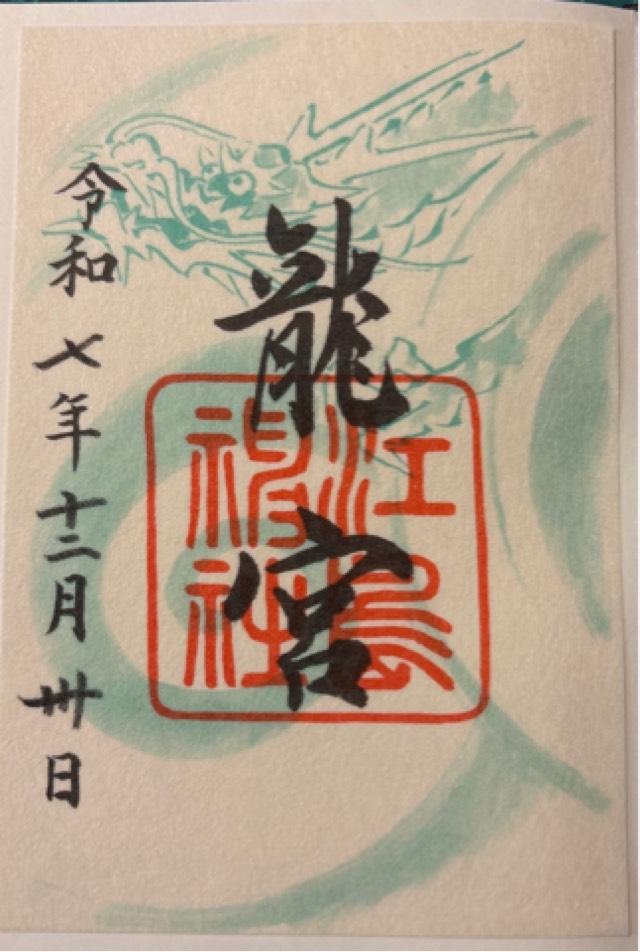 龍宮
江島神社
令和七年十二月卅日